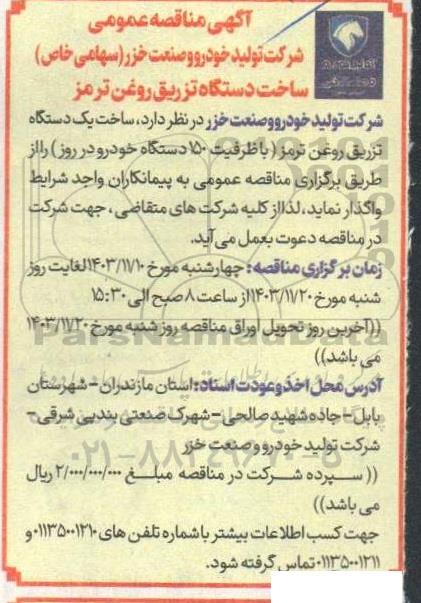 آگهی مناقصه عمومی
شرکت تولید خودرو و صنعت خزر (سهامی خاص)
ساخت دستگاه تزریق روغن ترمز
شرکت تولید خودرو و صنعت خزر در نظر دارد، ساخت یک دستگاه
تزریق روغن ترمز ( با ظرفیت ۱۵۰ دستگاه خودرو در روز ) را از
طریق برگزاری مناقصه عمومی به پیمانکاران واجد شرایط
واگذار نماید، لذا از کلیه شرکت های متقاضی ، جهت شرکت
در مناقصه دعوت بعمل می آید.
زمان برگزاری مناقصه : چهارشنبه مورخ ۱۴۰۳/۱۱/۱۰ لغایت روز
شنبه مورخ ۱۴۰۳/۱۱/۲۰ از ساعت ۸ صبح الی ۱۵:۳۰
((آخرین روز تحویل اوراق مناقصه روز شنبه مورخ ۱۴۰۳/۱۱/۲۰
می باشد))
آدرس محل اخذ و عودت اسناد: استان مازندران - شهرستان
بابل - جاده شهید صالحی - شهرک صنعتی بندپی شرقی -
شرکت تولید خودرو و صنعت خزر
(( سپرده شرکت در مناقصه مبلغ ۲/۰۰۰/۰۰۰/۰۰۰ ریال
می باشد))
جهت کسب اطلاعات بیشتر با شماره تلفن های ۰۱۱۳۵۰۰۱۲۱۰ و
۰۱۱۳۵۰۰۱۲۱۱ تماس گرفته شود.
ParsNamadData
۰۲۱-۸۸۳۴۹۶۷۰-۵